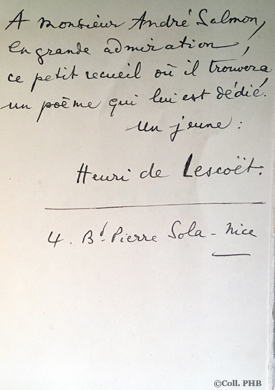 A Monsieur André Salmon,
en grande admiration,
ce petit recueil où il trouvera
un poème qui lui est dédié.
Un jeune :
Henri de Lescoët.
4. Bd Pierre Sola - Nice
©Coll. PHB